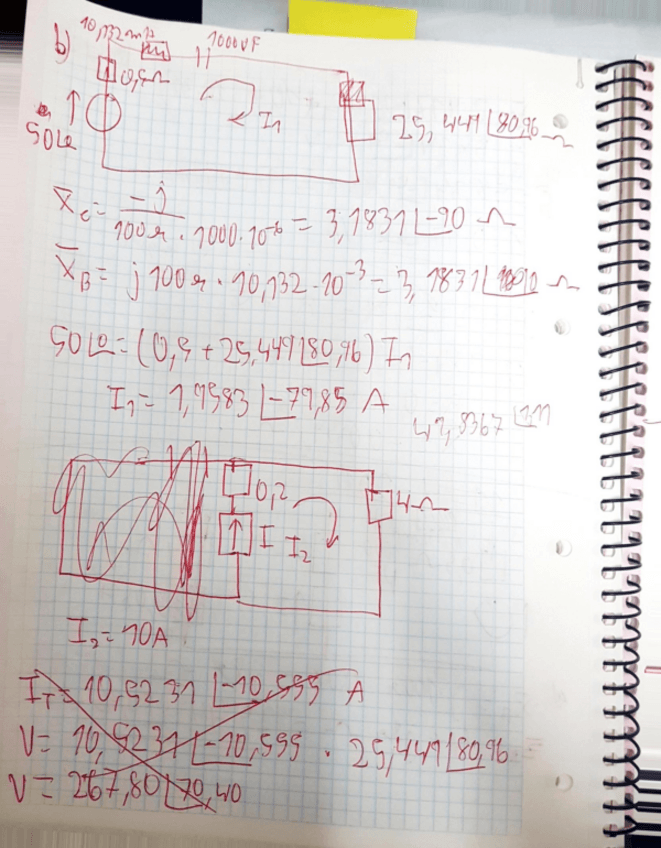 b) 10,132mH 1000uF
0,5Ω
50∠0
I₁ 25,449∠80,96 Ω
X̄c = -j / 100π · 1000·10⁻⁶ = 3,1831∠-90 Ω
X̄B = j 100π · 10,132·10⁻³ = 3,1831∠90 Ω
50∠0 = (0,5 + 25,449∠80,96) I₁
I₁ = 1,9583∠-79,85 A
49,8367∠1,11
0,2 4Ω
I I₂
I₂ = 10A
I_T = 10,5231∠-10,555 A
V = 10,5231∠-10,555 · 25,449∠80,96
V = 267,80∠70,40